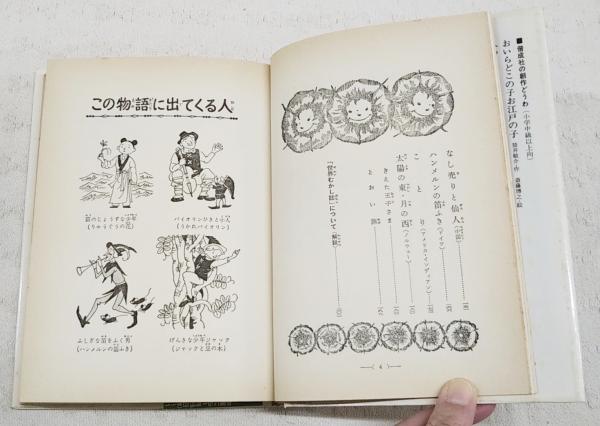 ■ 偕成社の創作どうわ（小学中級以上向）
おいらどこの子お江戸の子
なし売りと仙人（中国）
ハンメルンの笛ふき（ドイツ）
ことり（アメリカ・インディアン）
太陽の東・月の西（ノルウェー）
きえた王子さま
とおい
「世界むかし話」について（解説）
4
この物語に出てくる人
笛のじょうずな少年
（りゅうぐうの花）
バイオリンひきと小人
（うかれバイオリン）
ふしぎな笛をふく男
（ハンメルンの笛ふき）
げんきな少年ジャック
（ジャックと豆の木）